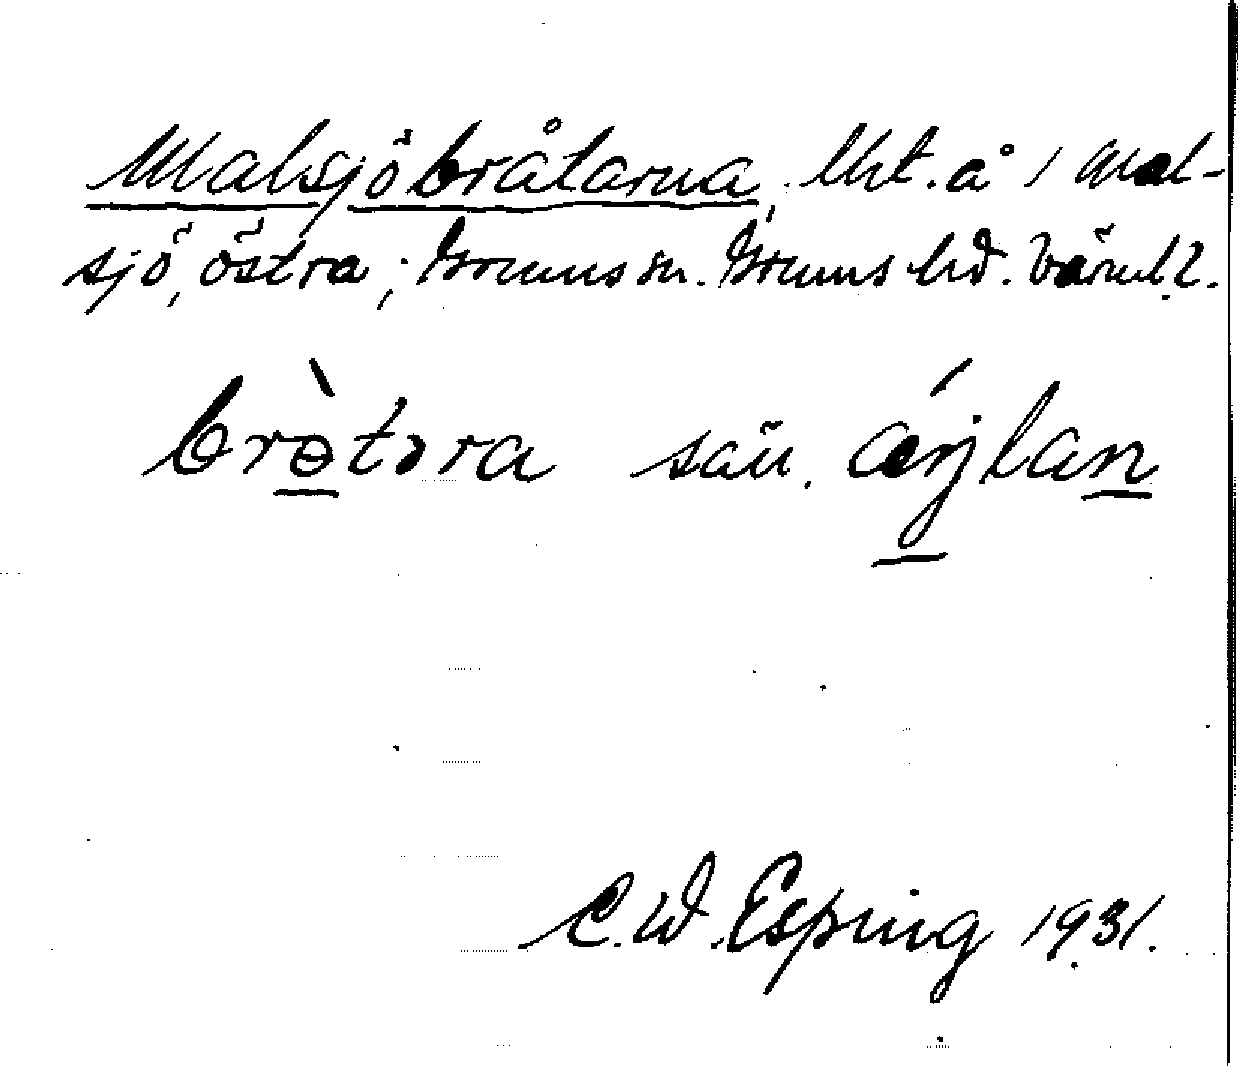 Malsjöbråtarna, lht. å / Mal-
sjö, östra, Grums sn. Grums hd. Värml.
brə̀təra sän.
C.W. Esping 1931.